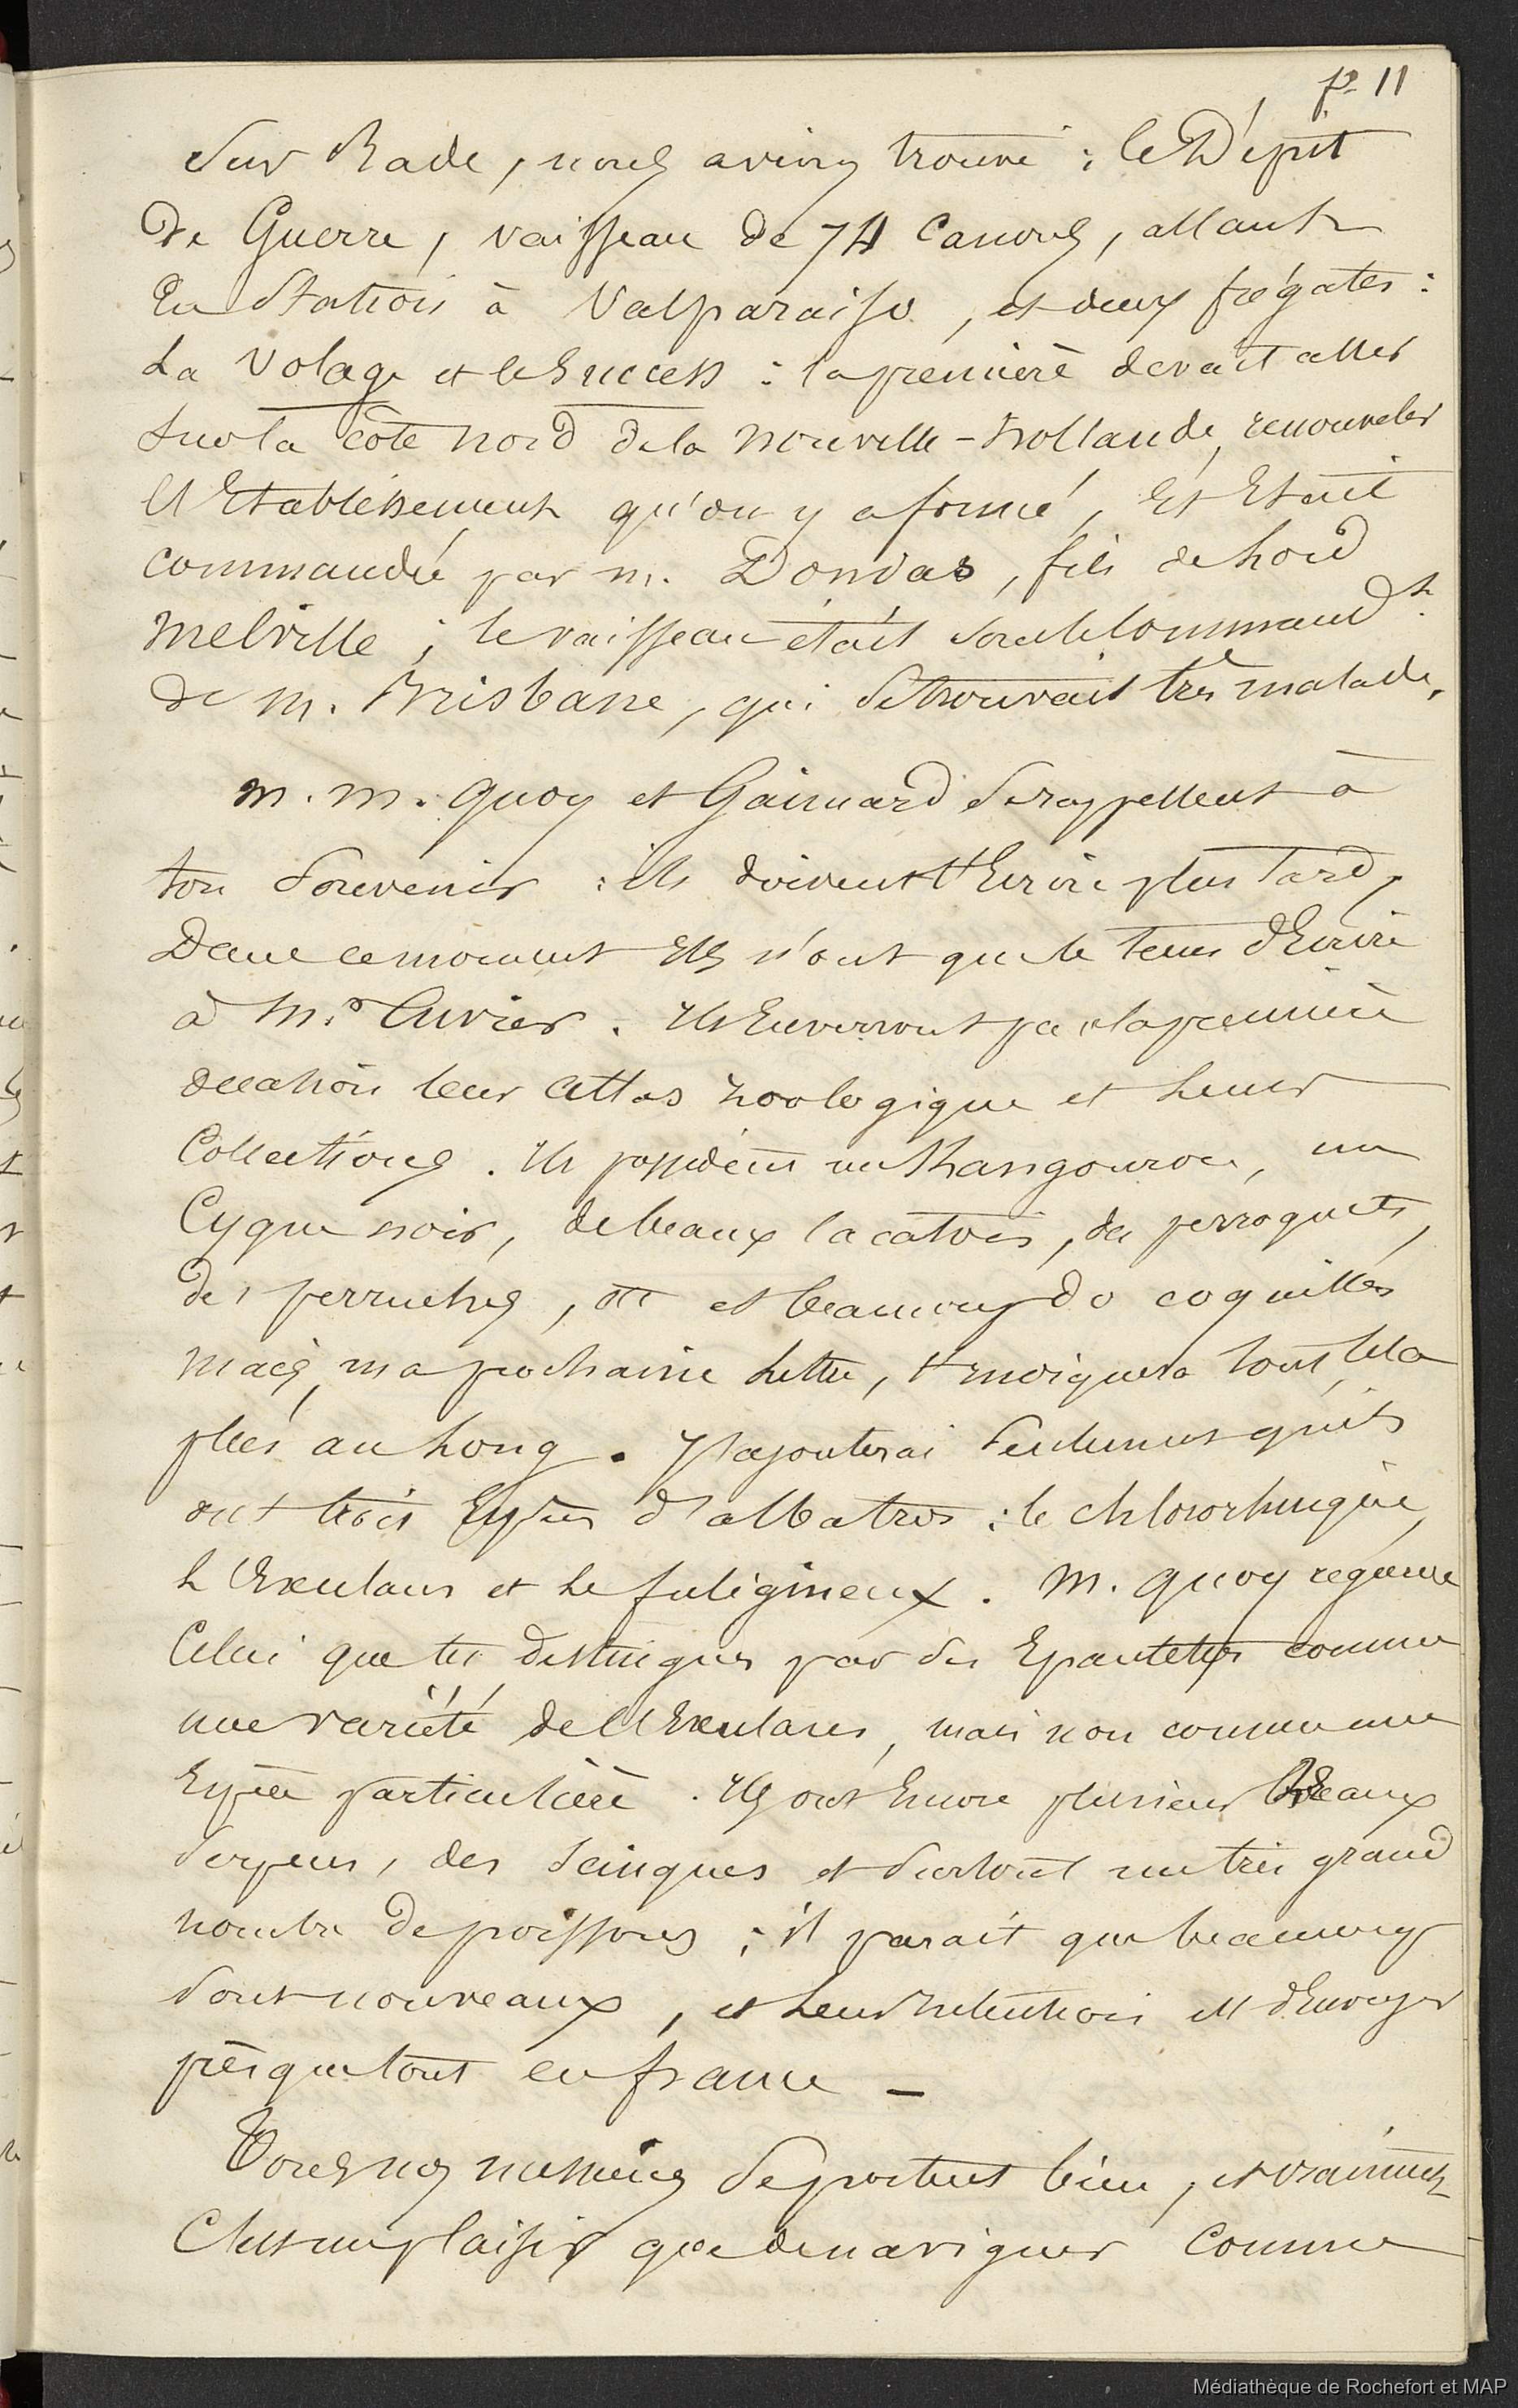 p. 11
Sur Rade, nous avions trouvé : le Dépit
de Guerre, vaisseau de 74 Canons, allant
en Station à Valparaiso, et deux frégates :
La Volage et le Success : la première devait aller
sur la côte nord de la Nouvelle-Hollande, renouveler
l'Etablissement qu'on y a formé, Et Etait
commandée par M. Dondas, fils de Lord
Melville ; le vaisseau était sous le Commandt
de M. Brisbane, qui se trouvait très malade.
M. M. Quoy et Gaimard se rappellent à
ton Souvenir : ils doivent t'Ecrire plus tard,
Dans ce moment Ils n'ont que le tems d'Ecrire
à Mr Cuvier. Ils Enverront par la première
occasion leur Atlas zoologique et Leurs
Collections. Ils possèdent un Kangourou, un
Cygne noir, de beaux Cacatois, des perroquets,
des perruches, etc et beaucoup de coquilles
Mais, ma prochaine Lettre, t'Enseignera tout Cela
plus au Long. J'ajouterai seulement qu'ils
ont trois Espèces d'albatros : le chlororhinque,
L'Exulans et Le fuligineux. M. Quoy regarde
Celui que tu distingues par des Epaulettes comme
une variété de l'Exulans, mais non comme une
Espèce particulière. Ils ont Encore plusieurs beaux
Serpens, des Scinques et Surtout un très grand
nombre de poissons ; il parait que beaucoup
sont nouveaux, et Leur Intention est d'Envoyer
presque tout en france _
Tous nos messieurs se portent bien, et vraiment
C'est un plaisir que de naviguer Comme
Médiathèque de Rochefort et MAP